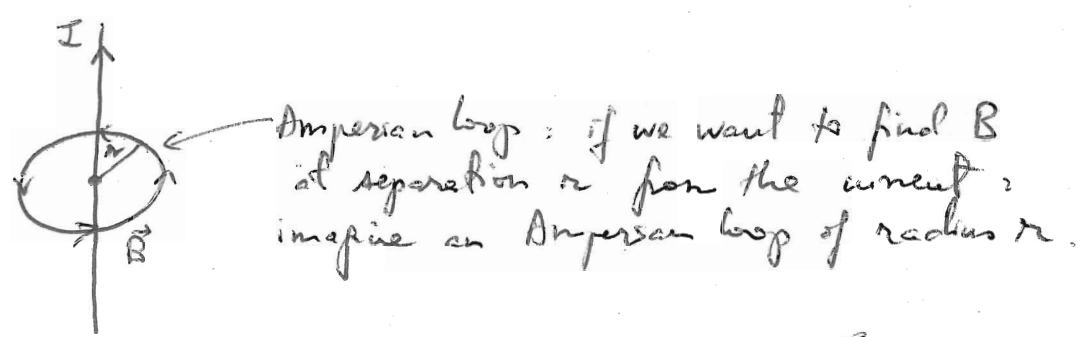 I
r
B⃗
Amperian loop : if we want to find B
at separation r from the current :
imagine an Amperian loop of radius r.